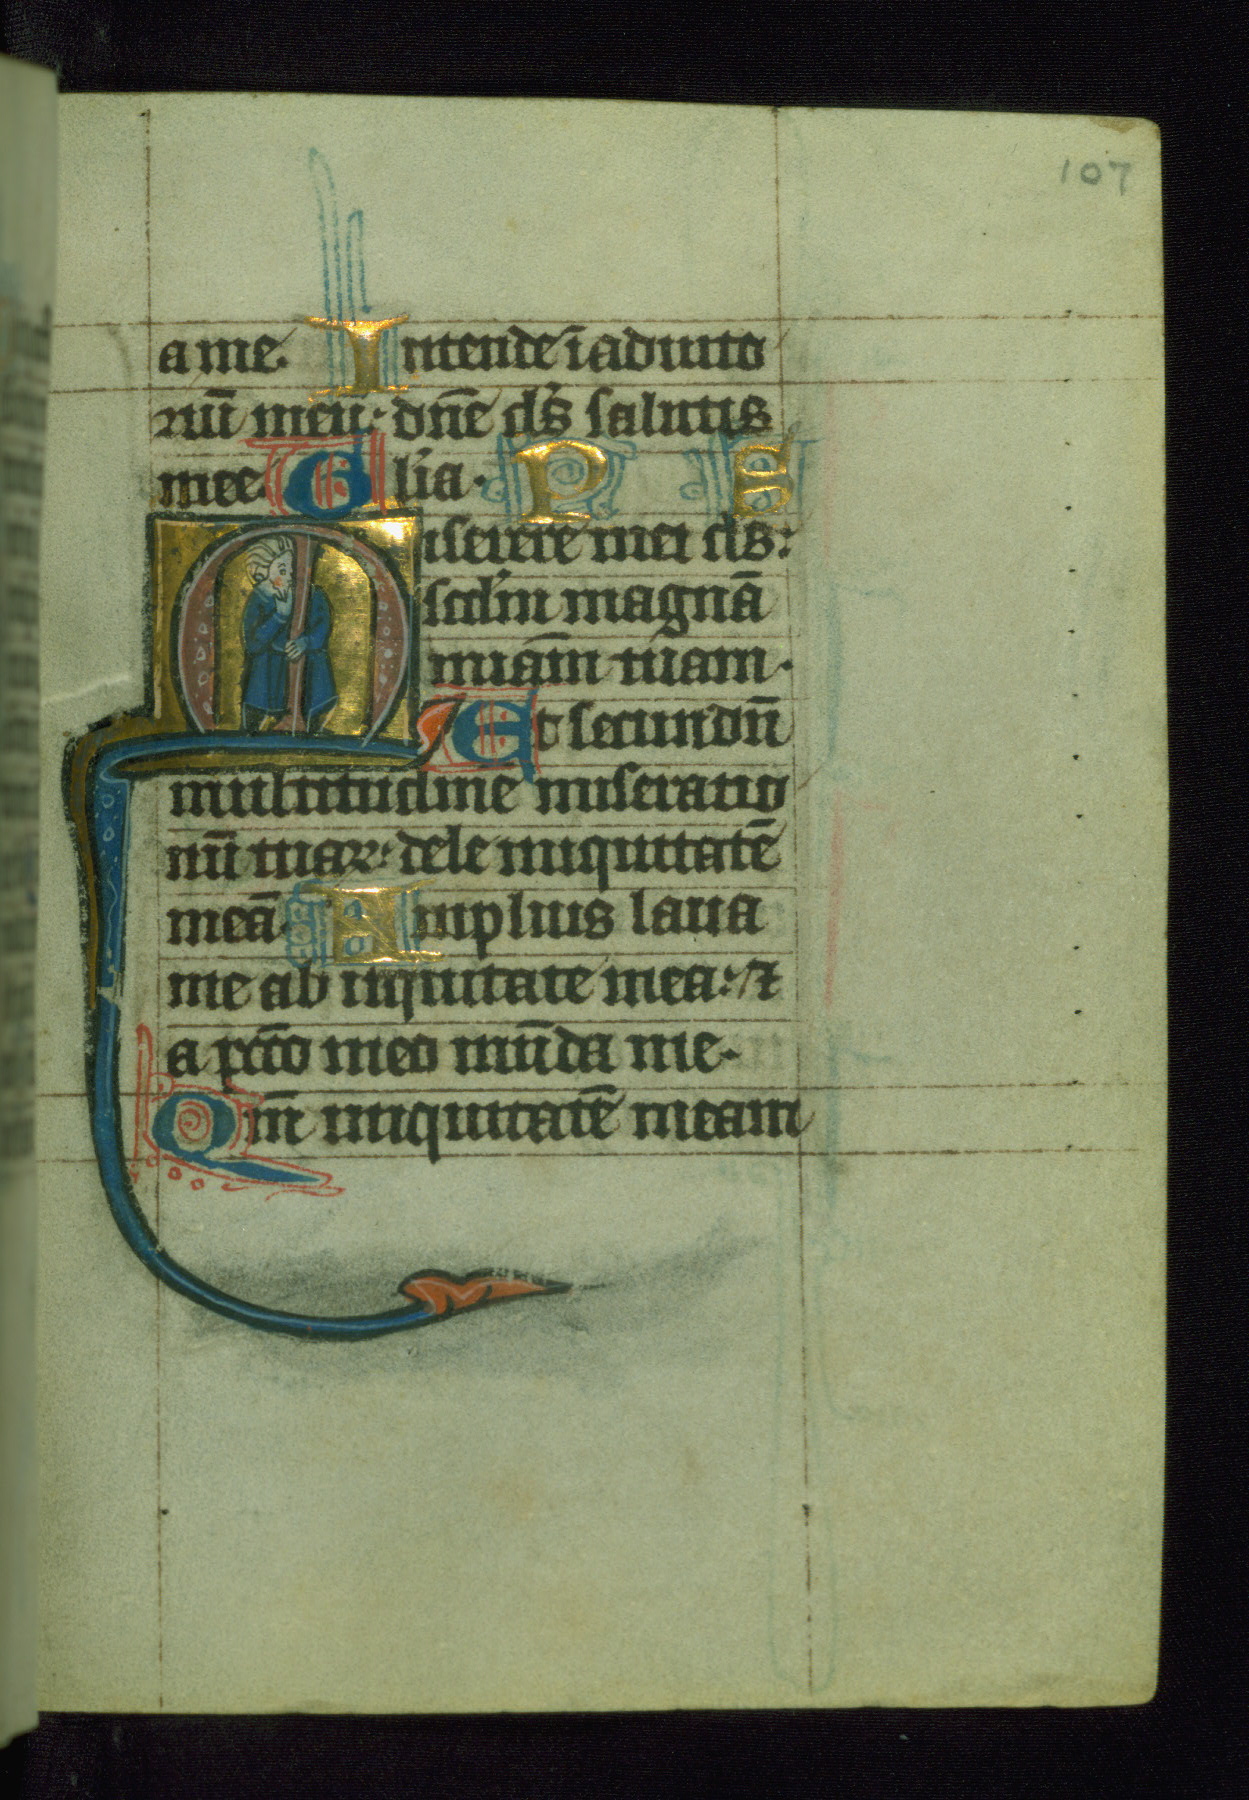 107
a me. Intende ī adiuto
riū meū. dn̄e ds̄ salutis
mee. Gl'ia. P S
Miserere mei ds̄:
scd'm magnā
miām tuam.
Et secundū
multitudine miseratio
nū tuaꝝ. dele iniquitatē
meā. Amplius laua
me ab iniquitate mea: ⁊
a pc̄cō meo mūda me.
Qm̄ iniquitatē meam